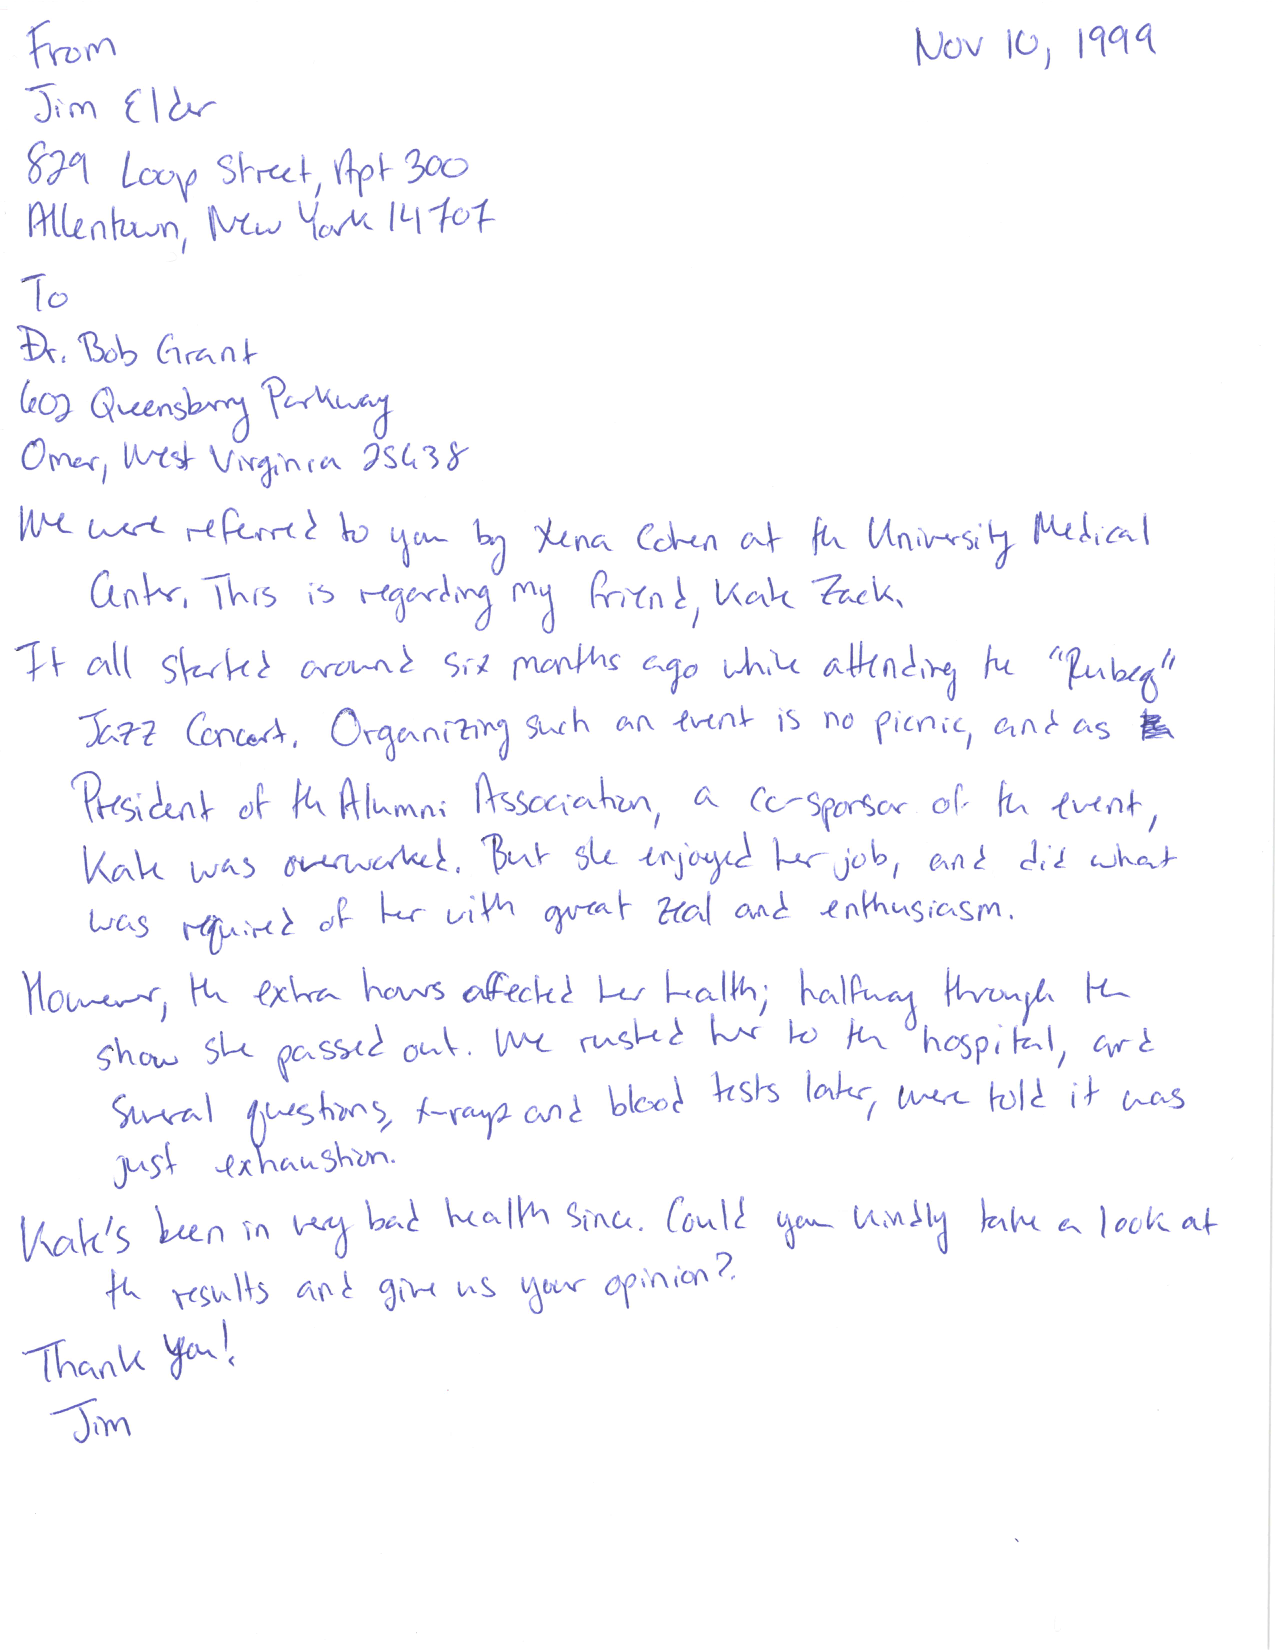 Nov 10, 1999
From
Jim Elder
829 Loop Street, Apt 300
Allentown, New York 14707
To
Dr. Bob Grant
602 Queensberry Parkway
Omar, West Virginia 25638
We were referred to you by Xena Cohen at the University Medical
Center. This is regarding my friend, Kate Zack.
It all started around six months ago while attending the "Rubeq"
Jazz Concert. Organizing such an event is no picnic, and as
President of the Alumni Association, a co-sponsor of the event,
Kate was overworked. But she enjoyed her job, and did what
was required of her with great zeal and enthusiasm.
However, the extra hours affected her health; halfway through the
show she passed out. We rushed her to the hospital, and
several questions, x-rays and blood tests later, were told it was
just exhaustion.
Kate's been in very bad health since. Could you kindly take a look at
the results and give us your opinion?
Thank you!
Jim